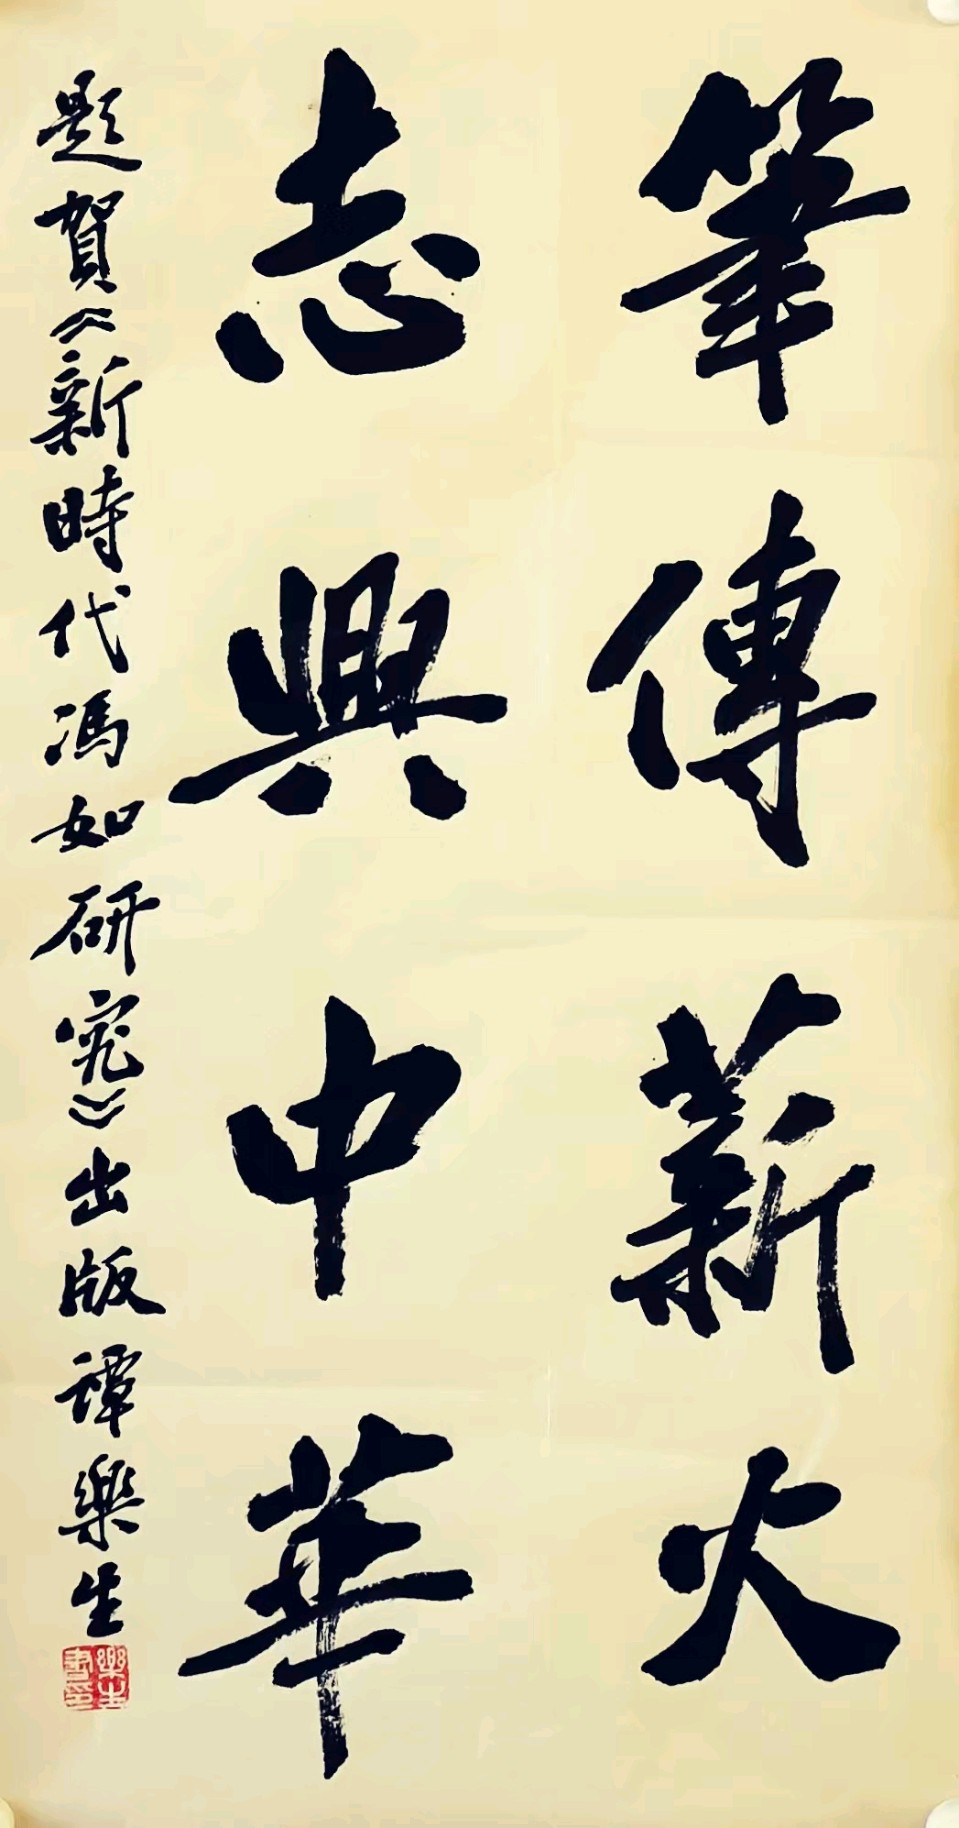 筆傳薪火
志興中華
題賀《新時代馮如研究》出版譚樂生